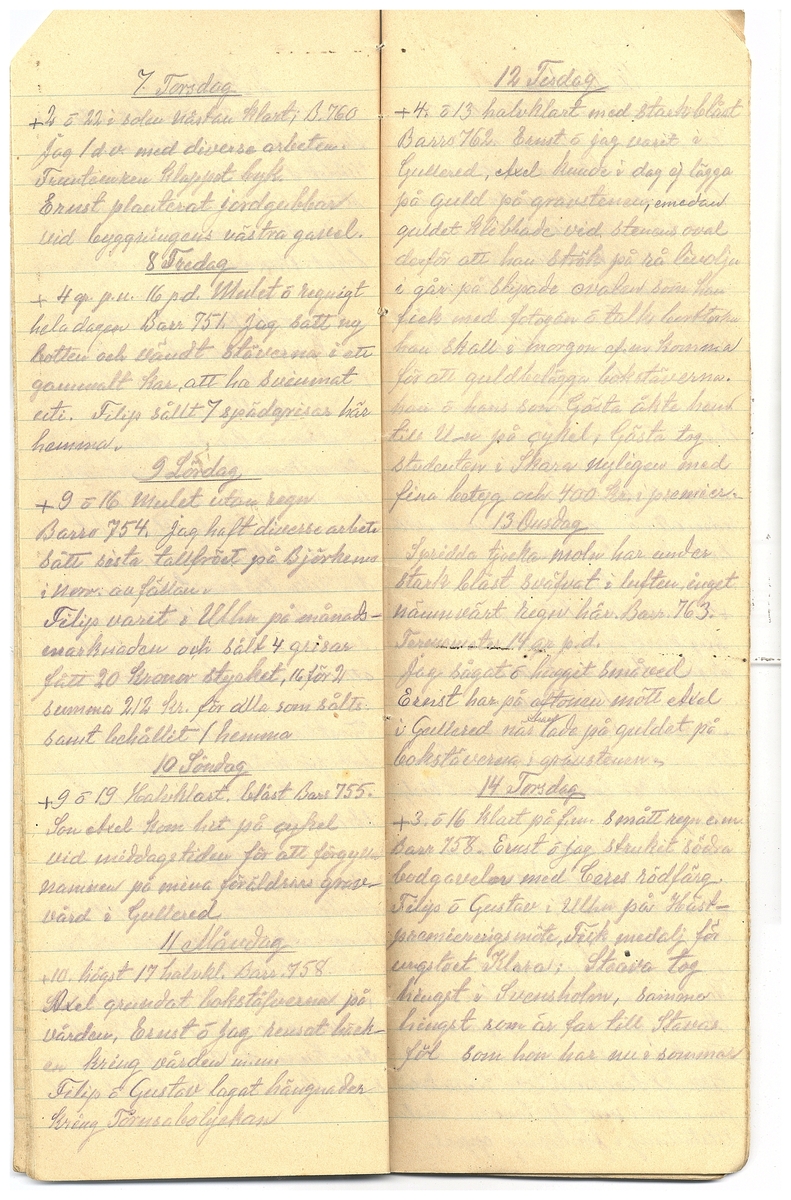 7 Torsdag
+2 ö 22 i solen nästan klart; B. 760
Jag / d.v. med diverse arbeten.
klappat byk.
Ernst planterat jordgubbar
vid byggningens västra gavel.
8 Fredag
+ 4 gr. p.n. 16 p.d. Mulet ö regnigt
hela dagen Barr 751. Jag satt ny
botten och vändt stäverna i ett
gammalt kar, att ha svinmat
uti. Filip sållt 7 spädgrisar här
hemma.
9 Lördag
+9 ö 16 Mulet utan regn
Barro 754. Jag haft diverse arbete
sått sista tallfröet på Björkems
i norr. av fällan.
Filip varit i Ulhn på månads-
marknaden och sålt 4 grisar
fått 20 kronor stycket, 16 för 2
summa 212 kr. för alla som sålts.
samt behållit 1 hemma
10 Söndag
+9 ö 19 Halvklart. blåst Barr 755.
Son Axel kom hit på cykel
vid middagstiden för att förgyll-
namnen på mina föräldrars grav-
vård i Gullered
11 Måndag
+10. högst 17 halvkl. Barr. 758
Axel grundat bokstäfverna på
vården, Ernst ö jag rensat häck-
en kring vården m.m.
Filip ö Gustav lagat hängnader
kring
12 Tisdag
+4. ö 13 halvklart med stark blåst
Barro 762. Ernst ö jag varit i
Gullered, Axel kunde i dag ej lägga
på guld på gravstenen, emedan
guldet klibbade vid stenens oval
derför att han strök på rå linolja
i går på slipade ovalen som han
fick med fotogen ö talk borttorka
han skall i morgon e.f.m komma
för att guldbelägga bokstäverna.
han ö hans son Gösta åkte hem
till U-n på cykel, Gösta tog
studenten i Skara nyligen med
fina betyg och 400 kr. i premier.
13 Onsdag
Spridda tjocka moln har under
stark blåst sväfvat i luften, inget
nämnvärt regn här. Barr. 763.
Termometer 14 gr p.d.
Jag sågat ö huggit småved
Ernst har på aftonen mött Axel
i Gullered när han lade på guldet på
bokstäverna i gravstenen.
14 Torsdag
+3. ö 16 klart på f.m. smått regn e.m
Barr 758. Ernst ö jag strukit södra
bodgaveln med Ceres rödfärg.
Filip ö Gustav i Ulhn på Häst-
premieringsmöte, Fick medalj för
ungstoet Klara; Stava tog
hingst i Svensholm, samma
hingst som är far till Stavas
föl som hon har nu i sommar